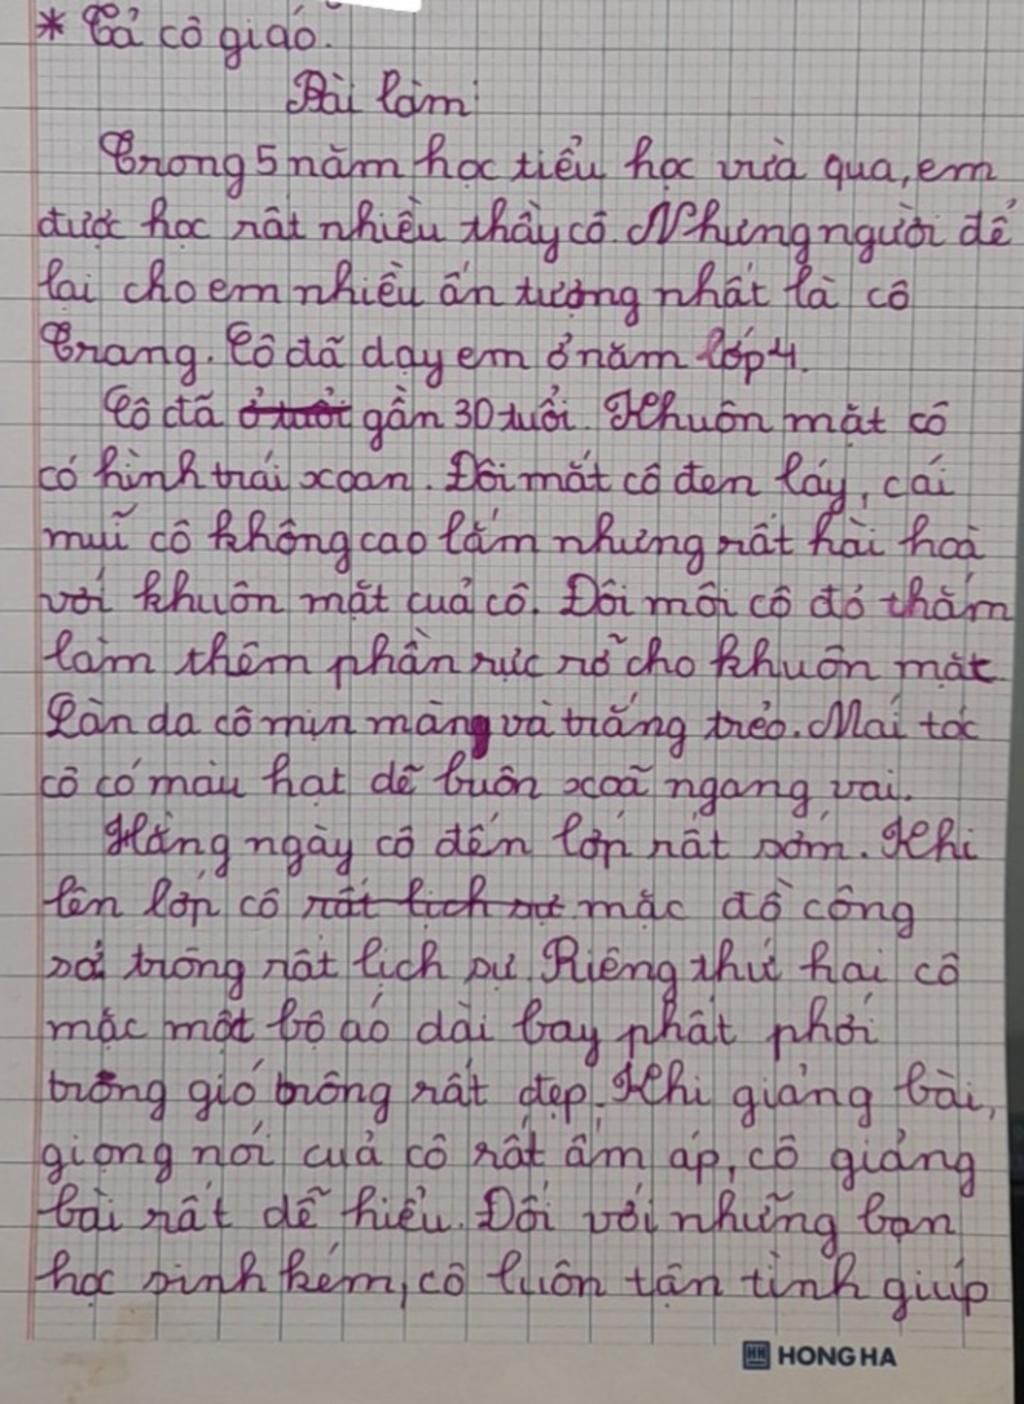 * Tả cô giáo.
Bài làm
Trong 5 năm học tiểu học vừa qua, em
được học rất nhiều thầy cô. Nhưng người để
lại cho em nhiều ấn tượng nhất là cô
Trang. Cô đã dạy em ở năm lớp 4.
Cô đã ở tuổi gần 30 tuổi. Khuôn mặt cô
có hình trái xoan. Đôi mắt cô đen láy, cái
mũi cô không cao lắm nhưng rất hài hoà
với khuôn mặt của cô. Đôi môi cô đỏ thắm
làm thêm phần rực rỡ cho khuôn mặt.
Làn da cô mịn màng và trắng trẻo. Mái tóc
cô có màu hạt dẻ buôn xoã ngang vai.
Hằng ngày cô đến lớp rất sớm. Khi
lên lớp cô rất lịch sự mặc đồ công
sở trông rất lịch sự. Riêng thứ hai cô
mặc một bộ áo dài bay phất phới
trong gió trông rất đẹp. Khi giảng bài,
giọng nói của cô rất ấm áp, cô giảng
bài rất dễ hiểu. Đối với những bạn
học sinh kém, cô luôn tận tình giúp
HONG HA